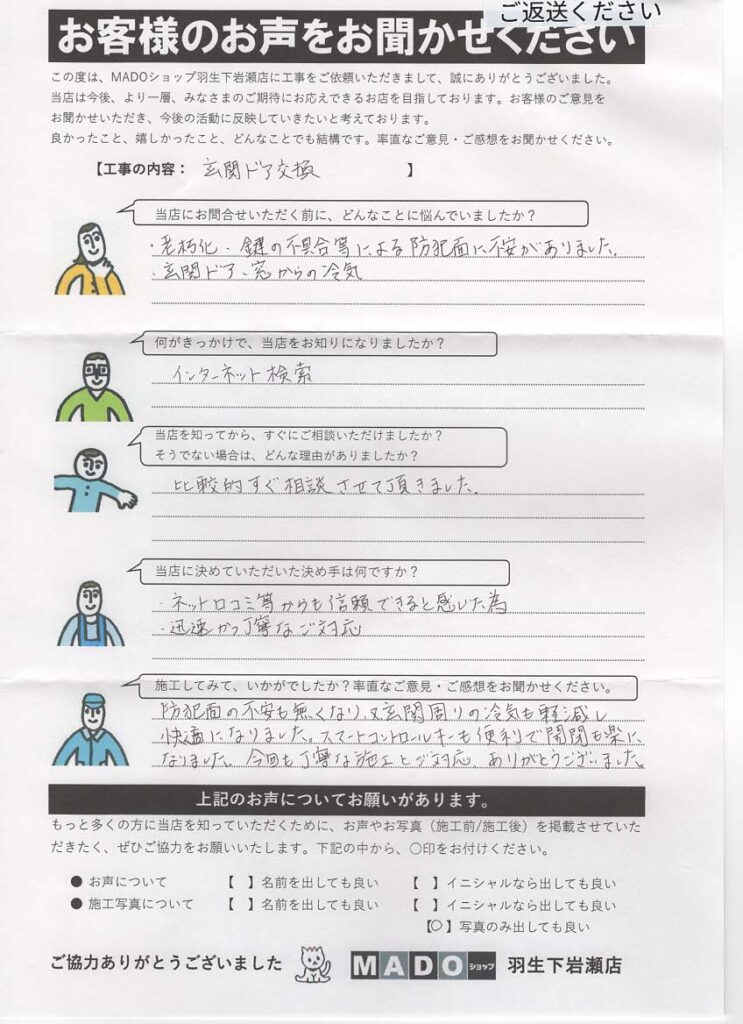 ご返送ください
お客様のお声をお聞かせください
この度は、MADOショップ羽生下岩瀬店に工事をご依頼いただきまして、誠にありがとうございました。
当店は今後、より一層、みなさまのご期待にお応えできるお店を目指しております。お客様のご意見を
お聞かせいただき、今後の活動に反映していきたいと考えております。
良かったこと、嬉しかったこと、どんなことでも結構です。率直なご意見・ご感想をお聞かせください。
【工事の内容： 玄関ドア交換 】
当店にお問合せいただく前に、どんなことに悩んでいましたか？
・老朽化、鍵の不具合等による防犯面に不安がありました。
・玄関ドア、窓からの冷気
何がきっかけで、当店をお知りになりましたか？
インターネット検索
当店を知ってから、すぐにご相談いただけましたか？
そうでない場合は、どんな理由がありましたか？
比較的すぐ相談させて頂きました。
当店に決めていただいた決め手は何ですか？
・ネット口コミ等からも信頼できると感じた為
・迅速かつ丁寧なご対応
施工してみて、いかがでしたか？率直なご意見・ご感想をお聞かせください。
防犯面の不安も無くなり、又玄関周りの冷気も軽減し
快適になりました。スマートコントロールキーも便利で開閉も楽に
なりました。今回も丁寧な施工とご対応、ありがとうございました。
上記のお声についてお願いがあります。
もっと多くの方に当店を知っていただくために、お声やお写真（施工前/施工後）を掲載させていた
だきたく、ぜひご協力をお願いいたします。下記の中から、〇印をお付けください。
● お声について 【 】名前を出しても良い 【 】イニシャルなら出しても良い
● 施工写真について 【 】名前を出しても良い 【 】イニシャルなら出しても良い
【○】写真のみ出しても良い
ご協力ありがとうございました MADOショップ 羽生下岩瀬店